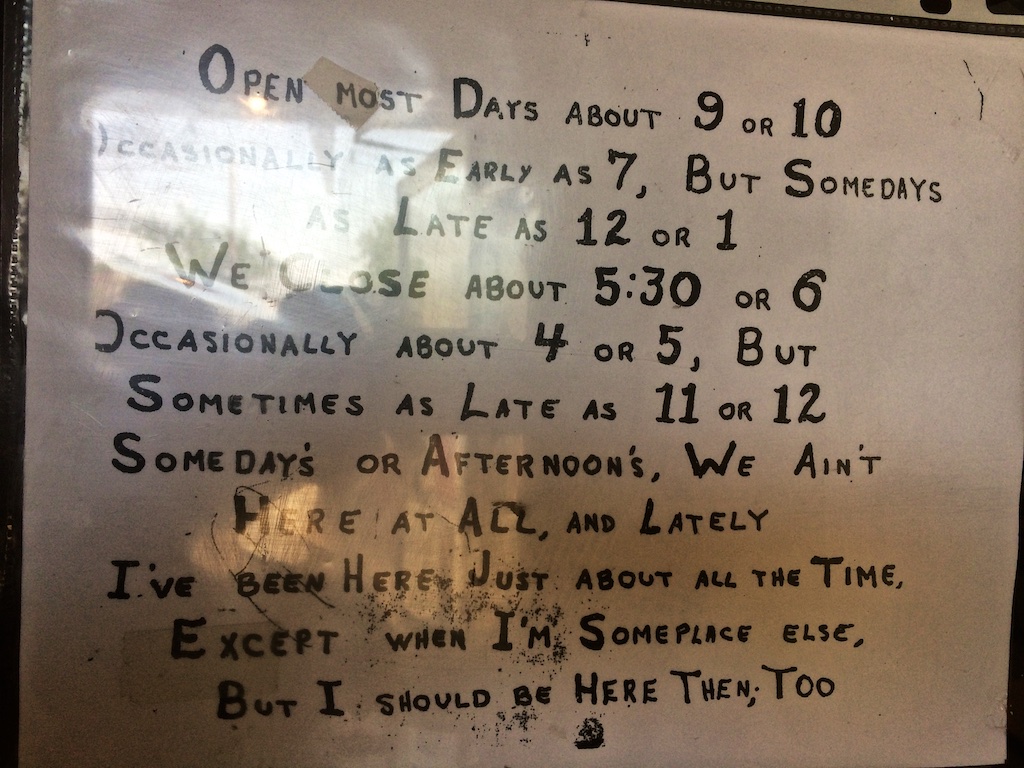 Open most Days about 9 or 10
Occasionally as Early as 7, But Somedays
as Late as 12 or 1
We Close about 5:30 or 6
Occasionally about 4 or 5, But
Sometimes as Late as 11 or 12
Someday's or Afternoon's, We Ain't
Here at All, and Lately
I've been Here Just about all the Time,
Except when I'm Someplace else,
But I should be Here Then, Too